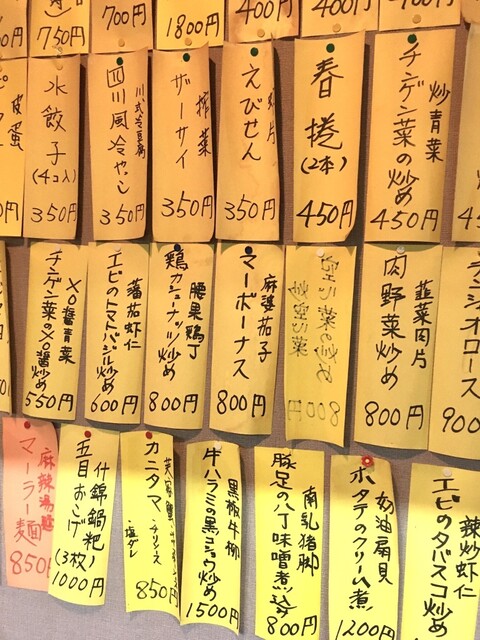 750円
700円
1800円
400円
400円
400円
皮蛋
水餃子
(4コ入)
350円
川式冷豆腐
四川風冷やっこ
350円
搾菜
ザーサイ
350円
えびせん
350円
春捲
(2本)
450円
炒青菜
チンゲン菜の炒め
450円
XO醤青菜
チンゲン菜のXO醤炒め
550円
蕃茄虾仁
エビのトマトバジル炒め
600円
腰果鶏丁
鶏カシューナッツ炒め
800円
麻婆茄子
マーボーナス
800円
炒空心菜
空心菜の炒め
800円
韮菜肉片
肉野菜炒め
800円
チンジャオロース
900
麻辣湯麺
マーラー麺
850
什錦鍋粑
五目おこげ
(3枚)
1000円
カニタマ
850円
黒椒牛柳
牛ハラミの黒コショウ炒め
1500円
南乳猪脚
豚足の八丁味噌煮込
800円
奶油扇貝
ホタテのクリーム煮
1200円
辣炒虾仁
エビのタバスコ炒め